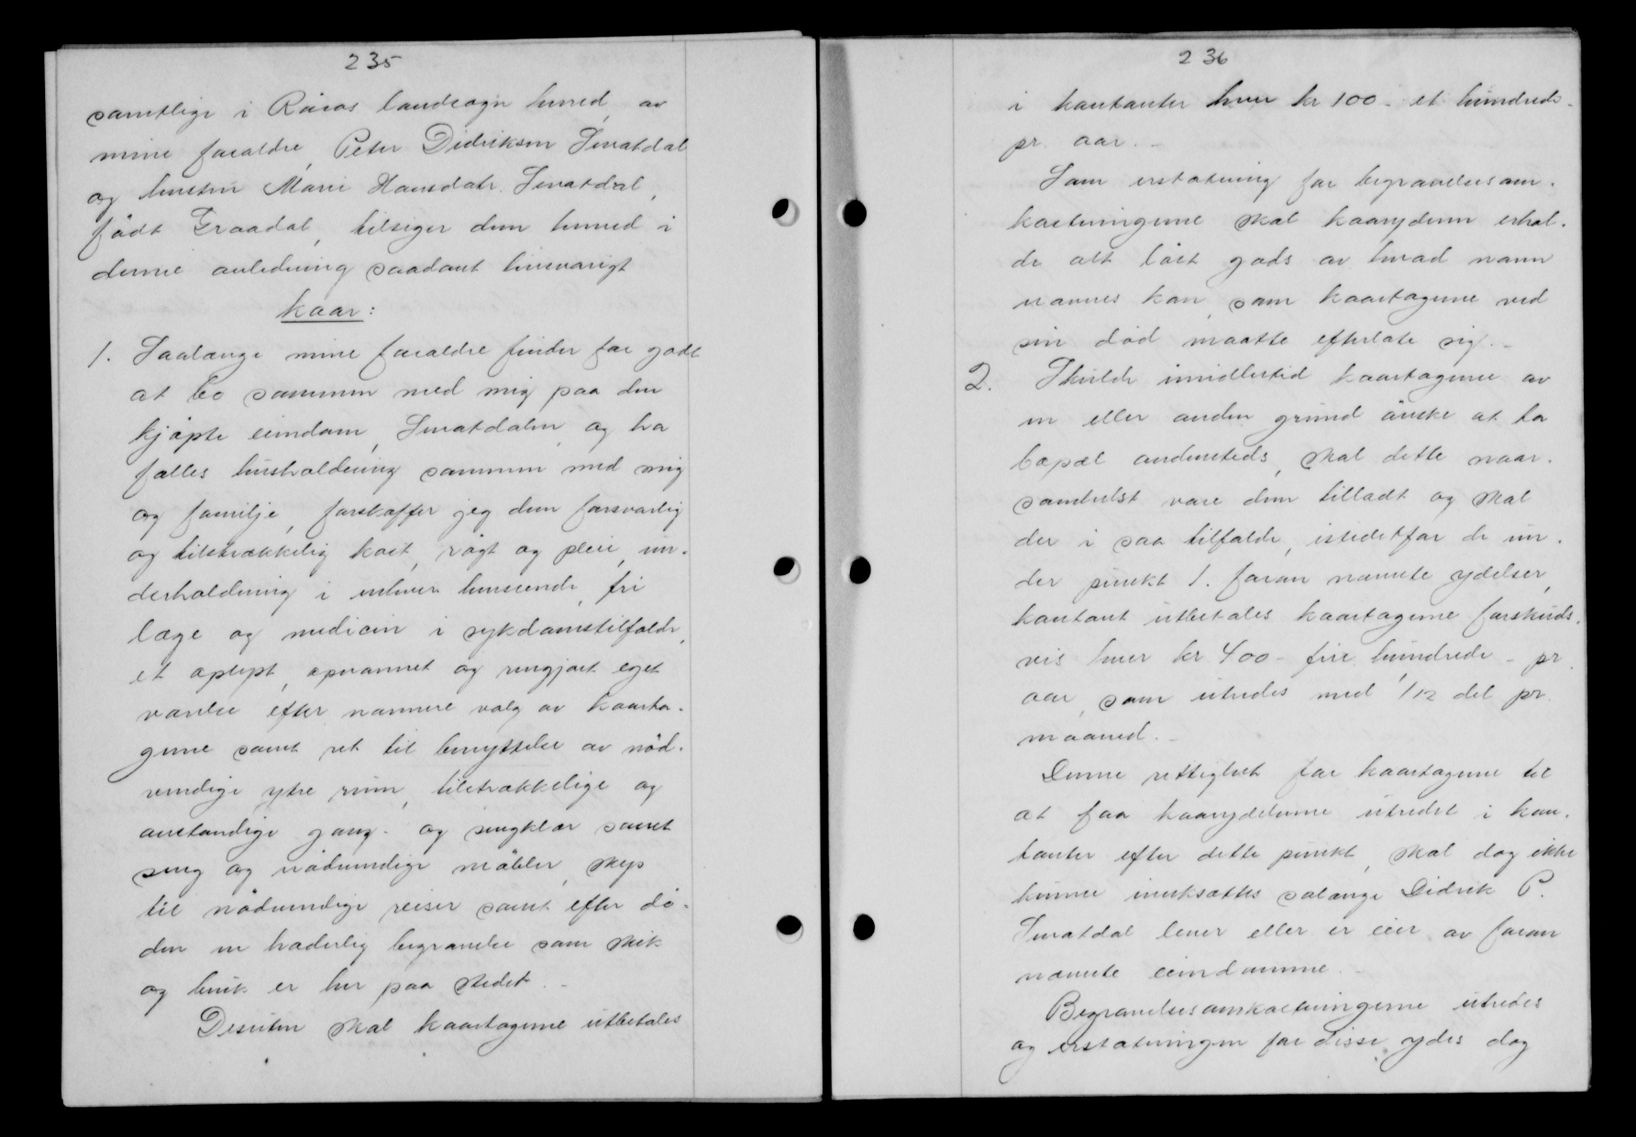 235
samtlige i Röros landsogn hvored, av
mine forældre, Peter Didriksen Smatdal
og hustru Marie Hansdatr. Smatdal,
födt Graadal, tilsiger dem herved i
denne anledning saadant livsvarigt
kaar:
1. Saalænge mine forældre finder for godt
at bo sammen med mig paa den
kjöpte eiendom, Smatdalen og ha
fælles husholdning sammen med mig
og familje, forskaffer jeg dem forsvarlig
og tilstrækkelig kost, rögt og pleie, un-
derholdning i enhver henseende, fri
læge og medicin i sykdomstilfælde,
et oplyst, opvarmet og rengjort eget
værelse efter nærmere valg av kaarta-
gerne samt ret til benyttelse av nöd-
vendige ytre rum, tilstrækkelige og
anstændige gang- og sengklær samt
seng og nödvendige möbler, skys
til nödvendige reiser samt efter dö-
den en hæderlig begravelse som skik
og bruk er her paa stedet.-
Desuten skal kaartagerne utbetales
236
i kontanter hver kr 100 - et hundrede -
pr. aar. -
Som erstatning for begravelsesom-
kostningerne skal kaaryderen erhol-
de alt löst gods av hvad navn
nævnes kan, som kaartagerne ved
sin död maatte efterlate sig. -
2. Skulde imidlertid kaartagerne av
en eller anden grund önske at ta
bopæl andensteds, skal dette naar-
somhelst være dem tilladt og skal
der i saa tilfælde, istedetfor de un-
der punkt 1. foran nævnte ydelser,
kontant utbetales kaartagerne forskuds-
vis hver kr 400 - fire hundrede - pr.
aar, som utredes med 1/12 del pr.
maaned. -
Denne rettighet for kaartagerne til
at faa kaarydelserne utredet i kon-
tanter efter dette punkt, skal dog ikke
kunne iverksættes salænge Didrik P.
Smatdal lever eller er eier av foran
nævnte eiendomme. -
Begravelsesomkostningerne utredes
og erstatningen for disse ydes dog